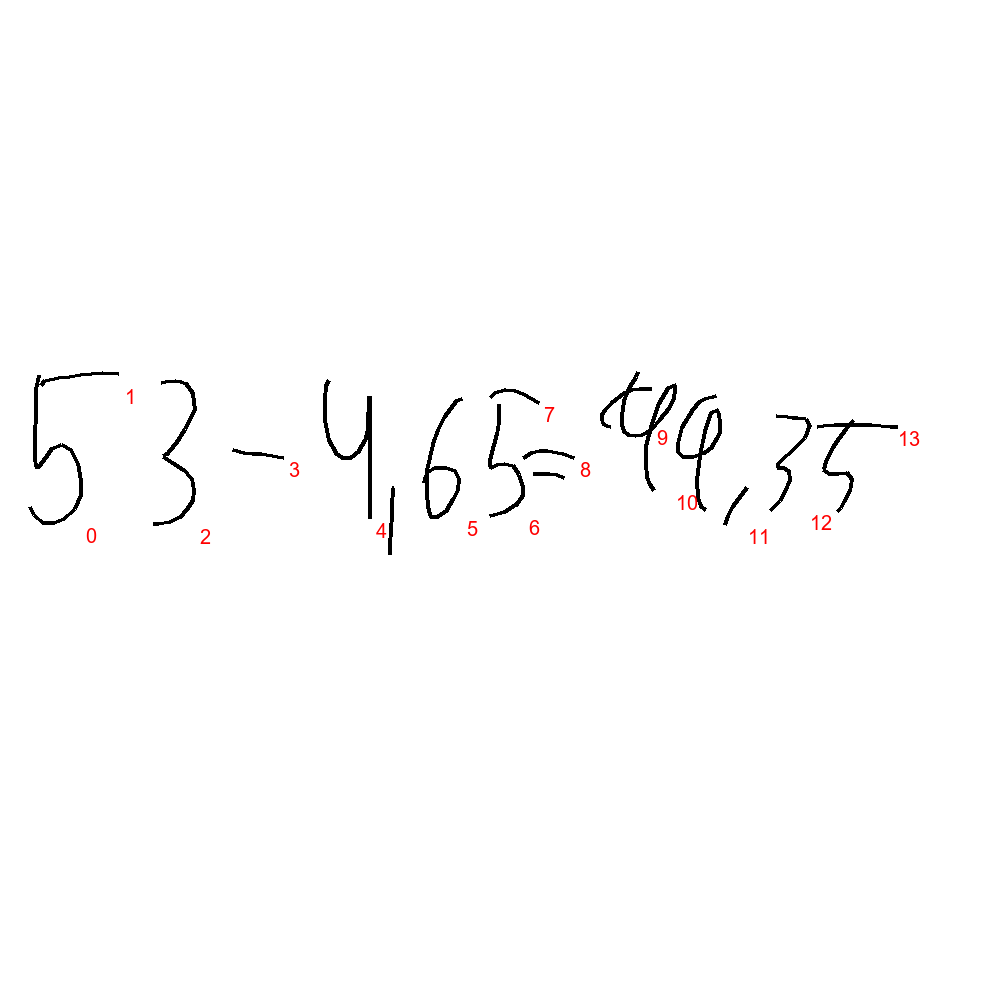 53 - 4,65 = 49,35
0 1 2 3 4 5 6 7 8 9 10 11 12 13